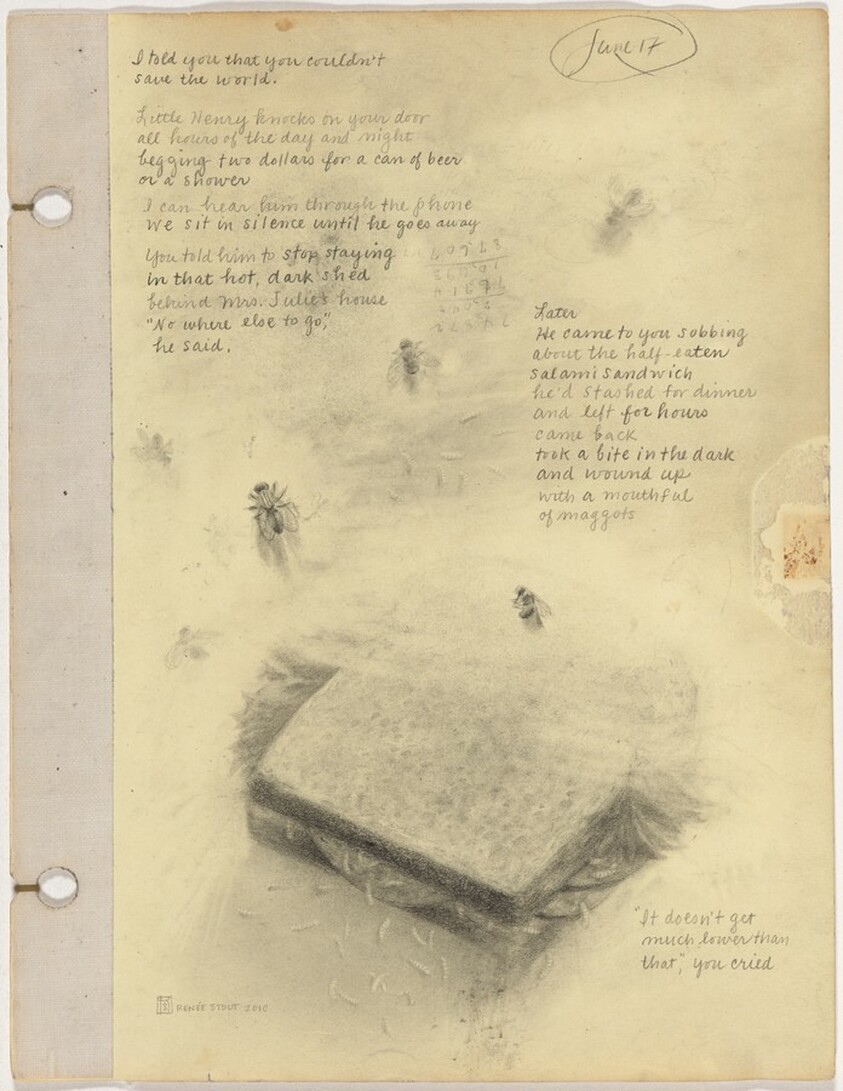 June 17
I told you that you couldn't
save the world.
Little Henry knocks on your door
all hours of the day and night
begging two dollars for a can of beer
or a shower
I can hear him through the phone
we sit in silence until he goes away
You told him to stop staying
in that hot, dark shed
behind Mrs. Julie's house
"No where else to go",
he said.
Later
He came to you sobbing
about the half-eaten
salami sandwich
he'd stashed for dinner
and left for hours
came back
took a bite in the dark
and wound up
with a mouthful
of maggots
"It doesn't get
much lower than
that", you cried
RENÉE STOUT 2010